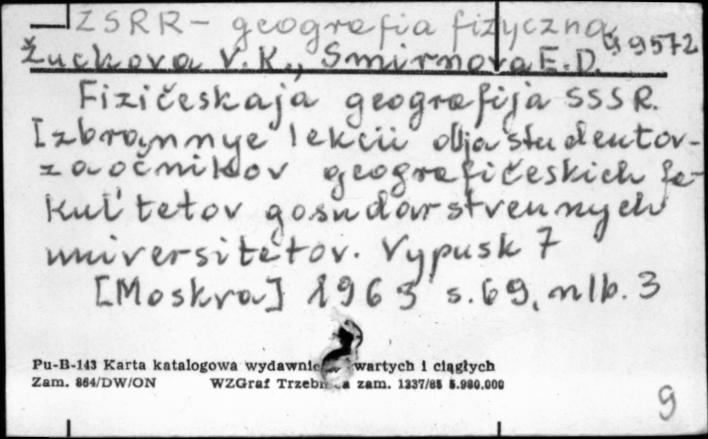 ZSRR - geografia fizyczna
Žuckova V.K., Smirnova E.D. G 9572
Fizičeskaja geografija SSSR.
Izbrannye lekcii dlja studentov-
zaočnikov geografičeskich fa-
kul'tetov gosudarstvennych
universitetov. Vypusk 7
[Moskva] 1963 s. 69, nlb. 3
Pu-B-143 Karta katalogowa wydawnic wartych i ciągłych
Zam. 864/DW/ON WZGraf Trzebn a zam. 1237/85 5.980.000
9